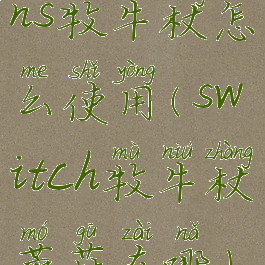 ns牧牛杖怎
me shǐ yòng
么使用(sw
mù niú zhàng
itch牧牛杖
mó gū zài nǎ
蘑菇在哪)